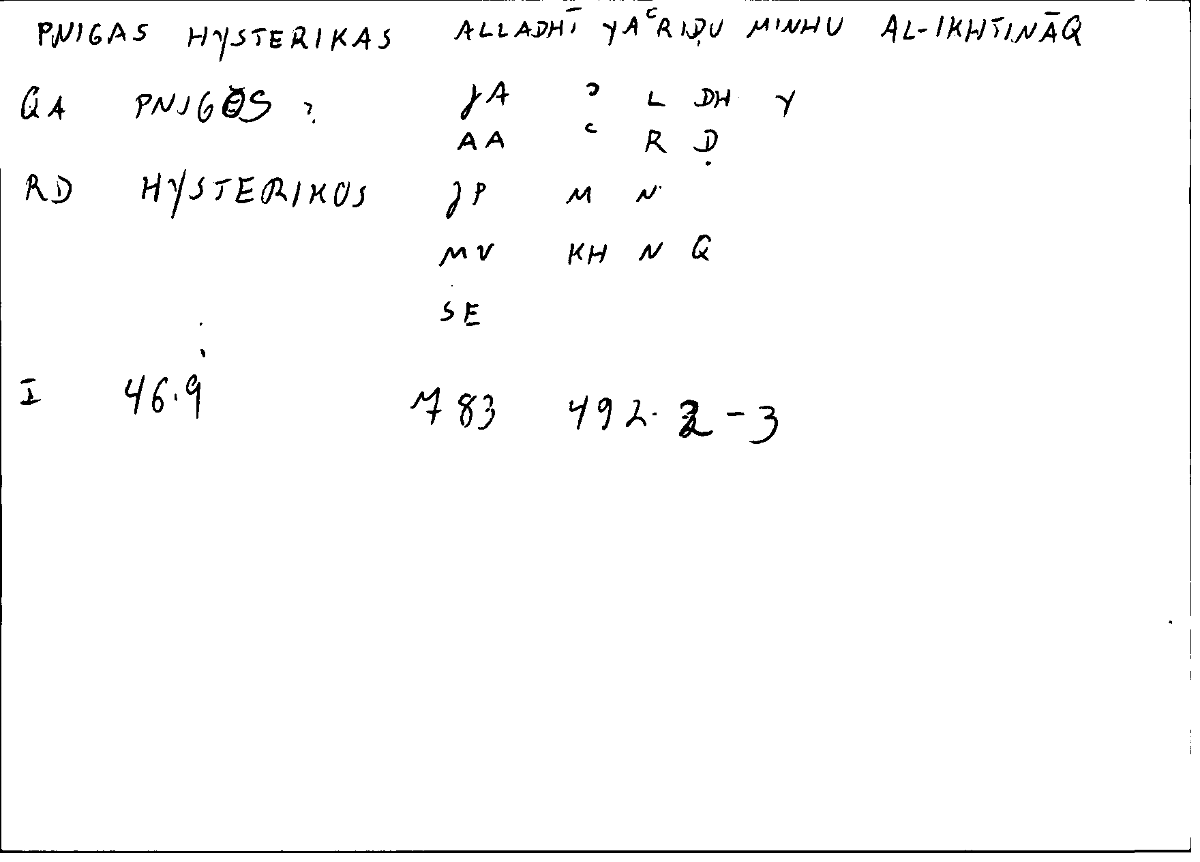 PNIGAS HYSTERIKAS ALLADHĪ YAʿRIḌU MINHU AL-IKHTINĀQ
QA PNIGOS ? JA ʾ L DH Y
AA ʿ R Ḍ
RD HYSTERIKOS JP M N
MV KH N Q
SE
I 46.9 M 83 492.2-3